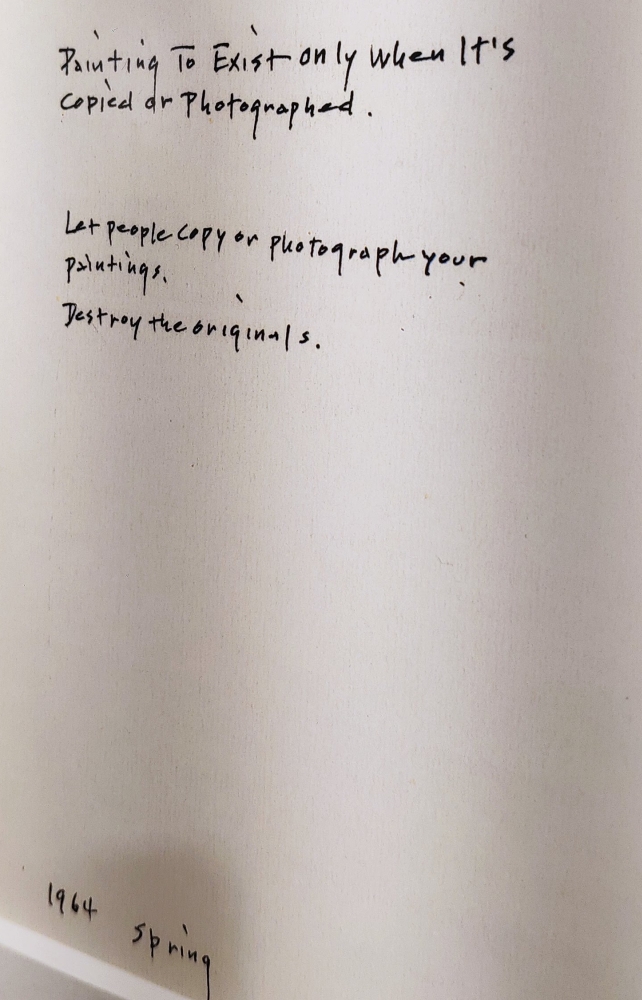 Painting To Exist only When It's
Copied or Photographed.
Let people copy or photograph your
paintings.
Destroy the originals.
1964 spring